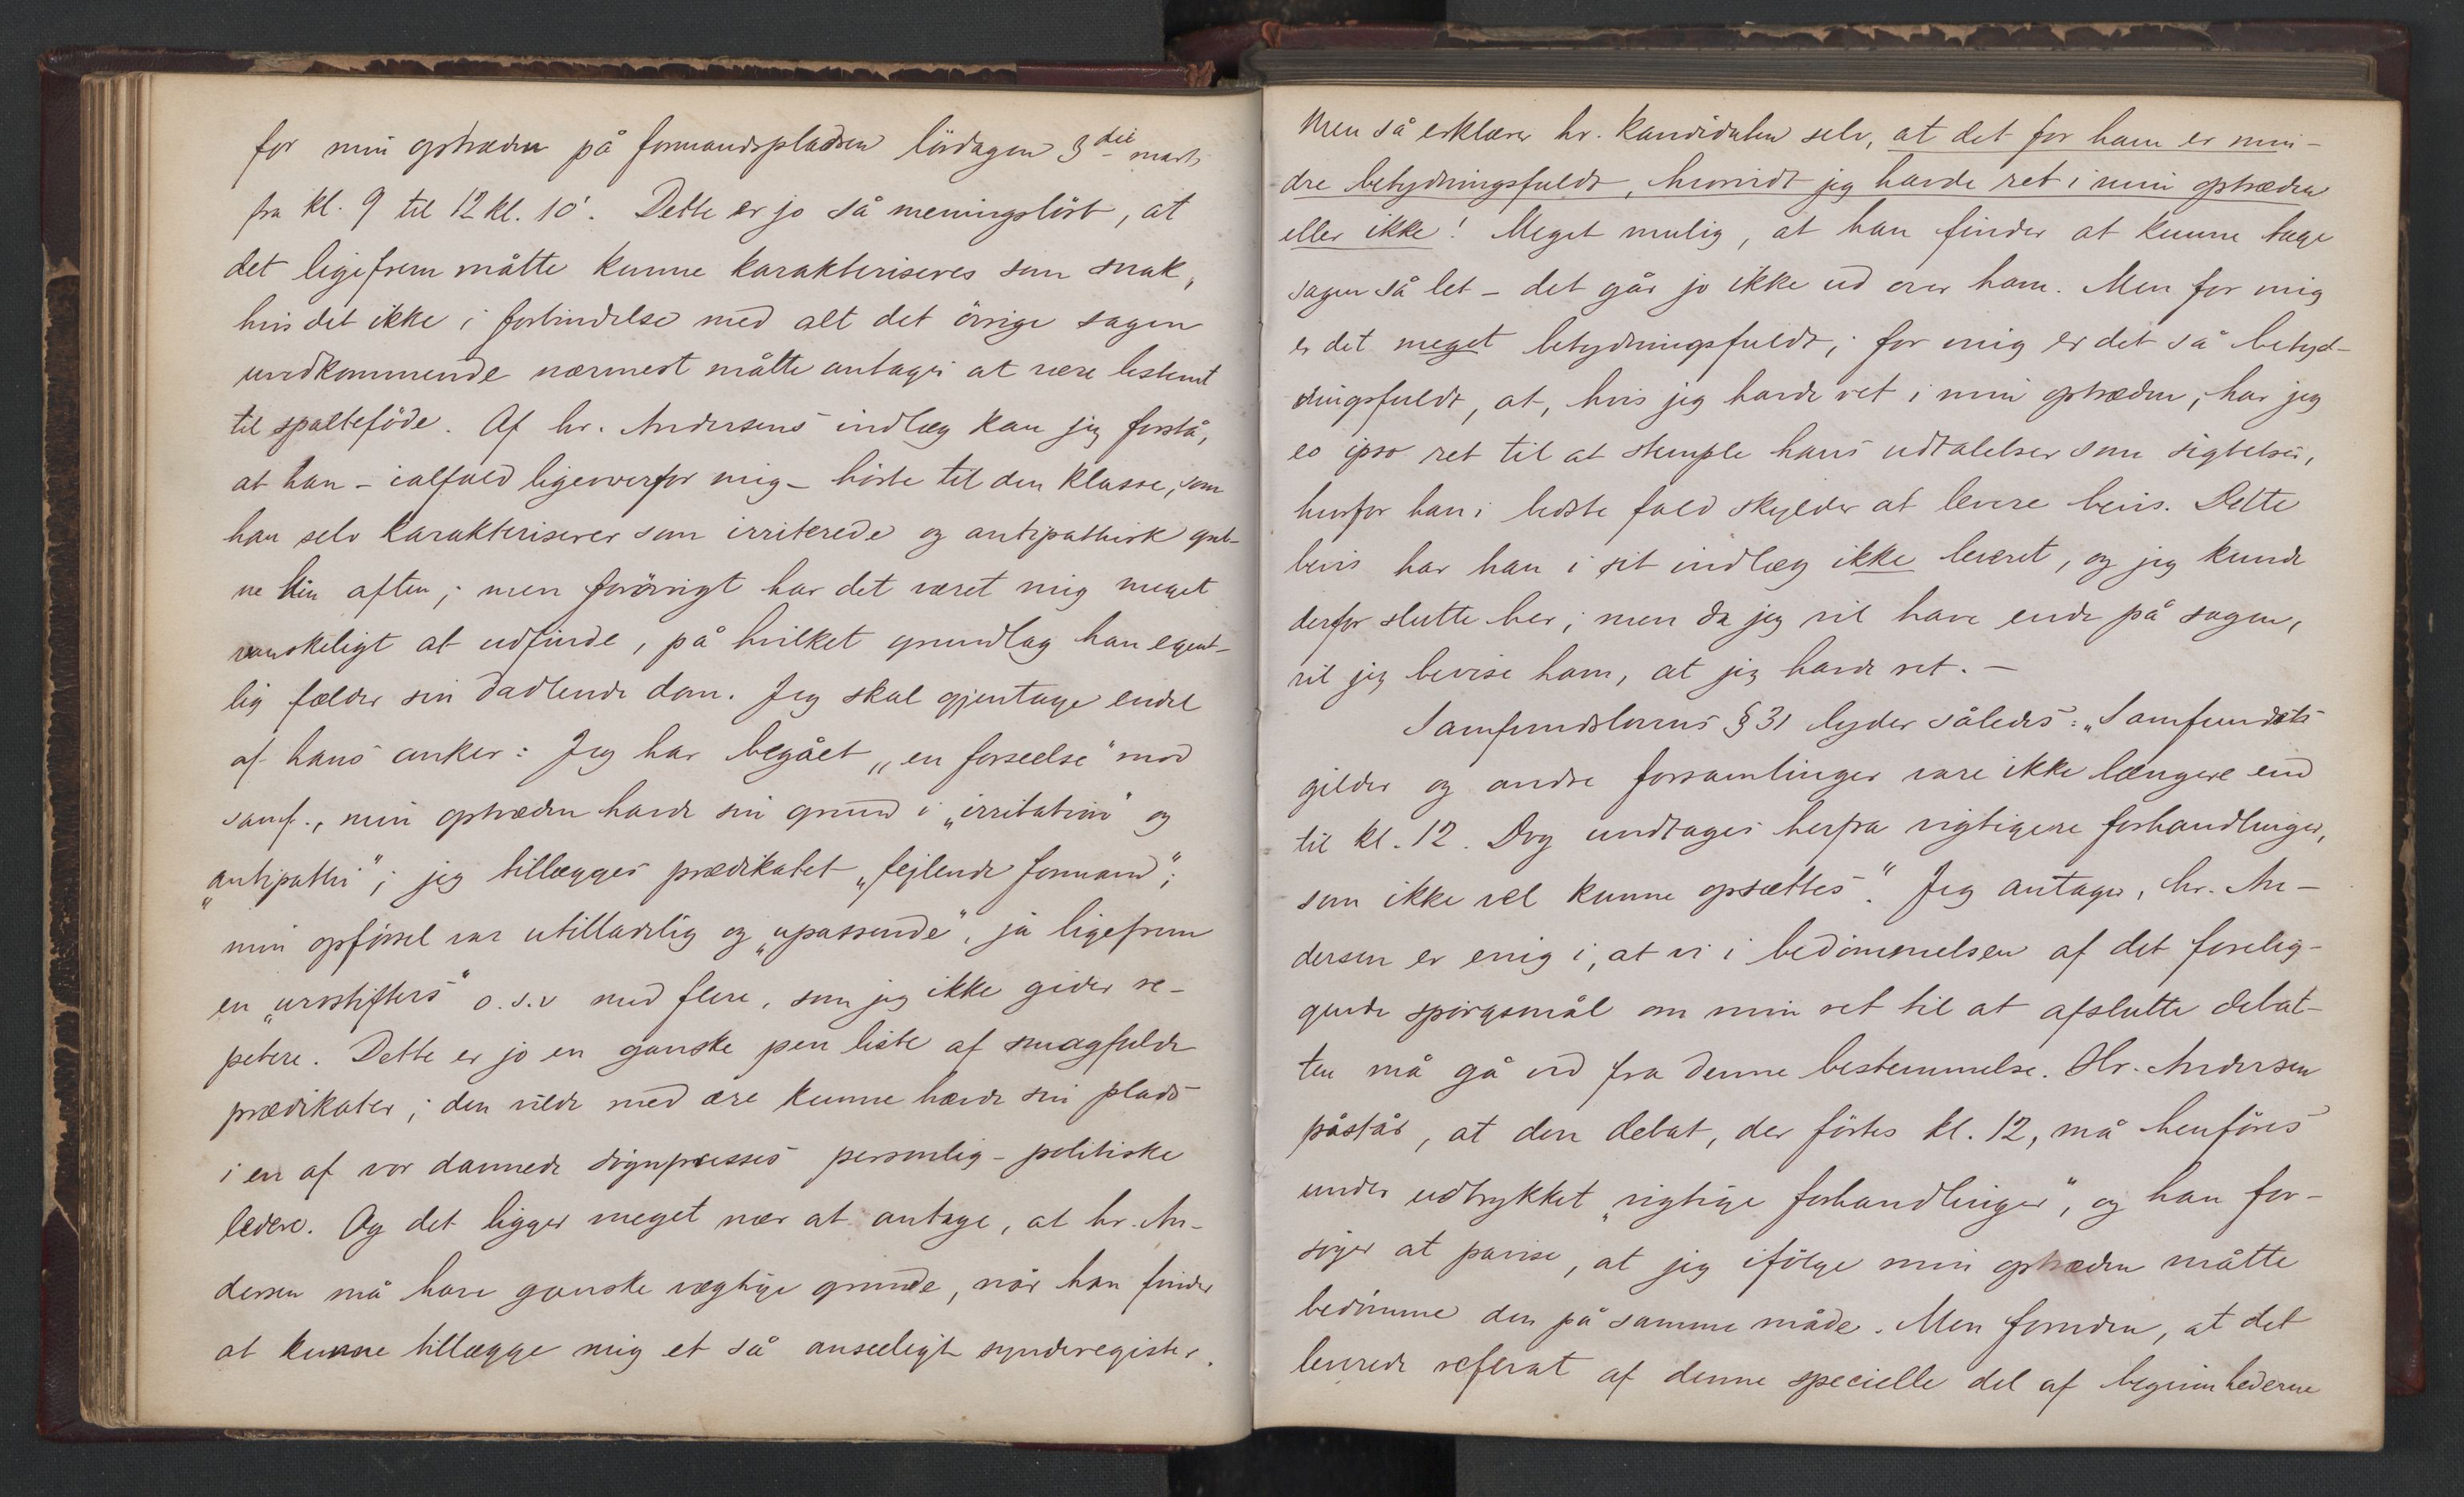 for min optræden på formandspladsen lördagen 3die marts
fra kl. 9 til 12 kl. 10'. Dette er jo så meningslöst, at
det ligefrem måtte kunne karakteriseres som snak,
hvis det ikke i forbindelse med alt det övrige sagen
uvedkommende nærmest måtte antages at være bestemt
til spalteföde. Af hr. Andersens indlæg kan jeg forstå,
at han – ialfald ligeoverfor mig – hörte til den klasse, som
han selv karakteriserer som irriterede og antipathisk
hin aften; men forövrigt har det været mig meget
vanskeligt at udfinde, på hvilket grundlag han egent-
lig fælder sin dadlende dom. Jeg skal gjentage endel
af hans anker: Jeg har begået „en forseelse" mod
samf., min optræden havde sin grund i „irritation" og
„antipathi"; jeg tillægges prædikatet „fejlende formand";
min opförsel var utilladelig og „upassende", ja ligefrem
en „urostifters" o.s.v med flere, som jeg ikke gider re-
petere. Dette er jo en ganske pen liste af smagfulde
prædikater; den vilde med ære kunne hævde sin plads
i en af vor dannede dögnpresses personlig-politiske
ledere. Og det ligger meget nær at antage, at hr. An-
dersen må have ganske vægtige grunde, når han finder
at kunne tillægge mig et så anseeligt synderegister.
Men så erklærer hr. kandidaten selv, at det for ham er min-
dre betydningsfuldt, hvorvidt jeg havde ret i min optræden
eller ikke! Meget mulig, at han finder at kunne tage
sagen så let – det går jo ikke ud over ham. Men for mig
er det meget betydningsfuldt; for mig er det så betyd-
ningsfuldt, at, hvis jeg havde ret i min optræden, har jeg
eo ipso ret til at stemple hans udtalelser som sigtelser,
hvorfor han i bedste fald skylder at levere bevis. Dette
bevis har han i sit indlæg ikke leveret, og jeg kunde
derfor slutte her; men da jeg vil have ende på sagen,
vil jeg bevise ham, at jeg havde ret. –
Samfundslovens § 31 lyder således: „Samfundets
gilder og andre forsamlinger vare ikke længere end
til kl. 12. Dog undtages herfra vigtigere forhandlinger,
som ikke vel kunne opsættes". Jeg antager, hr. An-
dersen er enig i, at vi i bedömmelsen af det forelig-
gende spörgsmål om min ret til at afslutte debat-
ten må gå ud fra denne bestemmelse. Hr. Andersen
påstår, at den debat, der förtes kl. 12, må henföres
under udtrykket „vigtige forhandlinger", og han for-
söger at påvise, at jeg ifölge min optræden måtte
bedömme den på samme måde. Men foruden, at det
leverede referat af denne specielle del af begivenhederne